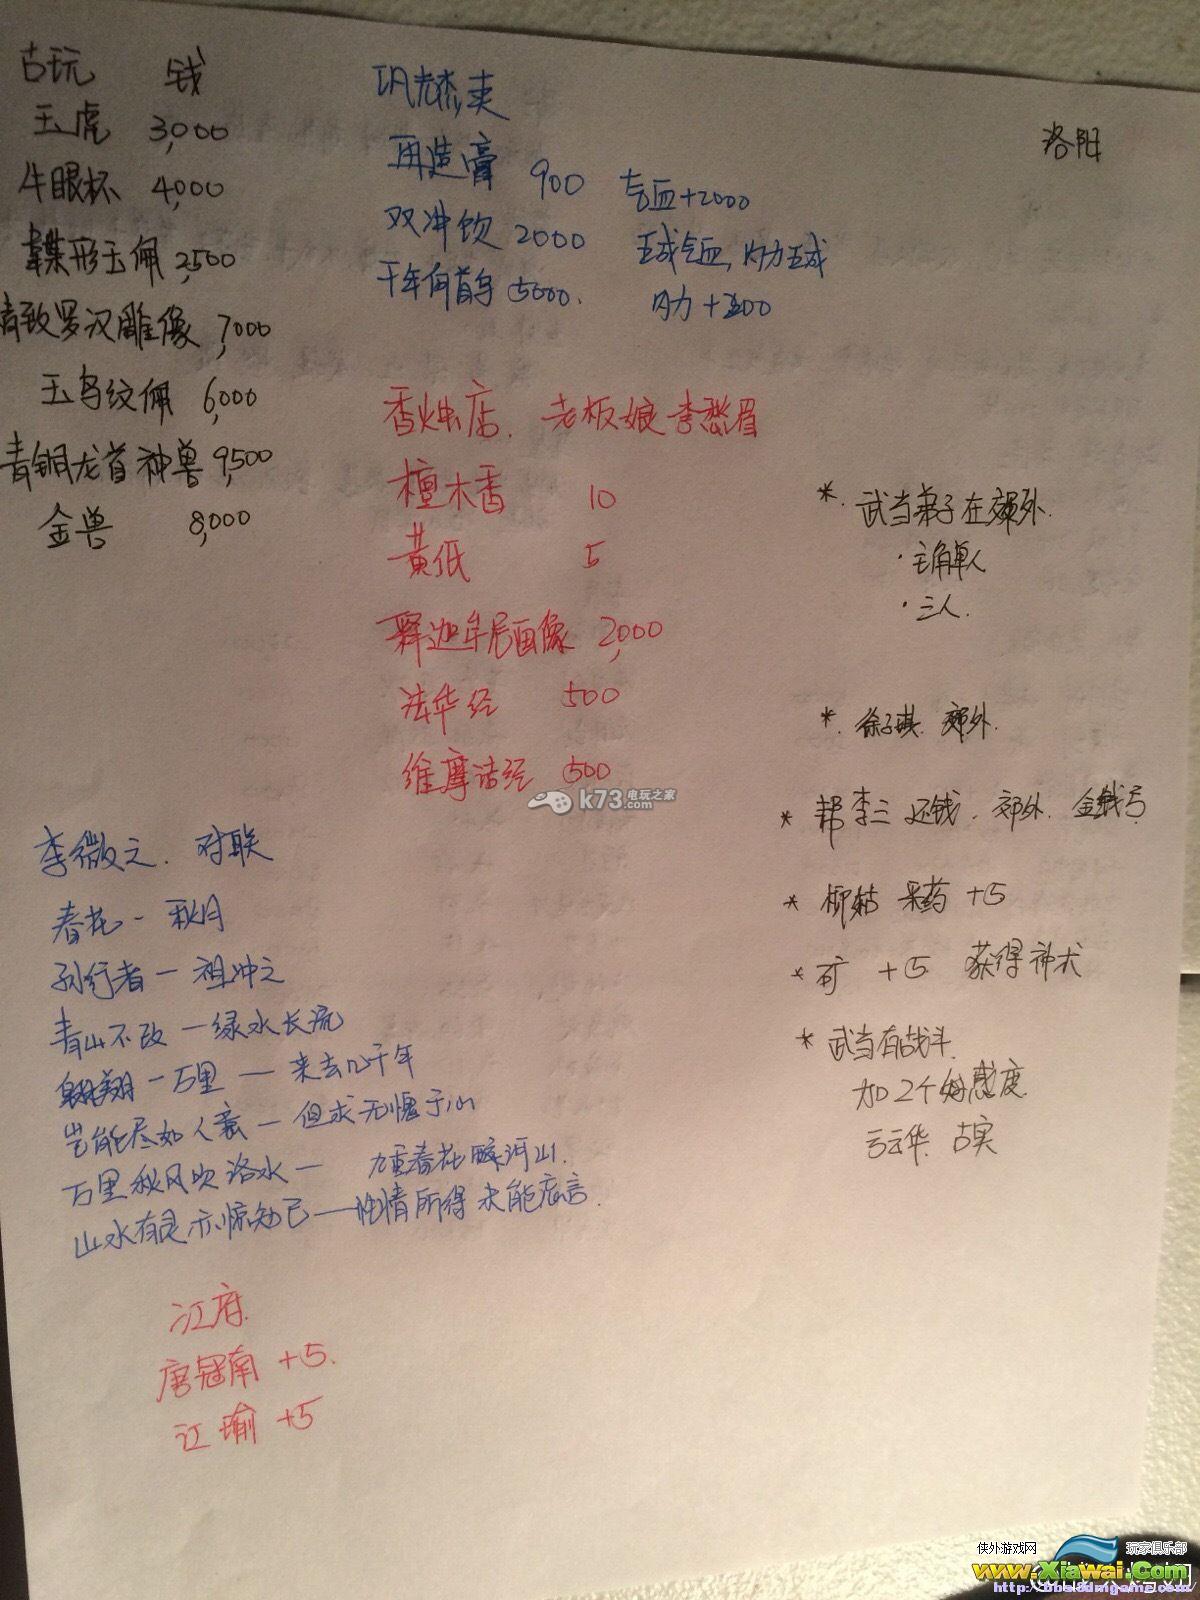 洛阳
古玩 钱
玉虎 3,000
牛眼杯 4,000
蝶形玉佩 2,500
青致罗汉雕像 7,000
玉鸟纹佩 6,000
青铜龙首神兽 9,500
金兽 8,000
再造膏 900 气血+2000
双冲饮 2000 五成气血,内力五成
千年何首乌 5000. 内力+
香烛店. 老板娘 李愁眉
檀木香 10
黄低 5
释迦牟尼画像 2,000
法华经 500
维摩诘经 500
李微之. 对联
春花 - 秋月
孙行者 - 祖冲之
青山不改 - 绿水长流
翱翔 - 万里 - 来去几千年
岂能尽如人意 - 但求无愧于心
万里秋风吹洛水 - 九重春花醉河山.
山水有灵亦惊知己 - 性情所得未能忘言.
江府.
唐冠南 +5.
江瑜 +5
*. 武当弟子在郊外.
· 主角单人
· 三人.
*. 徐子琪. 郊外.
* 帮李三还钱. 郊外.
* 柳姑 采药 +5
* 矿 +5 获得神犬
* 武当有战斗.
加2个好感度.
古实
k73 电玩之家
.com
侠外游戏网 玩家俱乐部
www.Xiawai.Com
http://bbs.3dmgame.com/